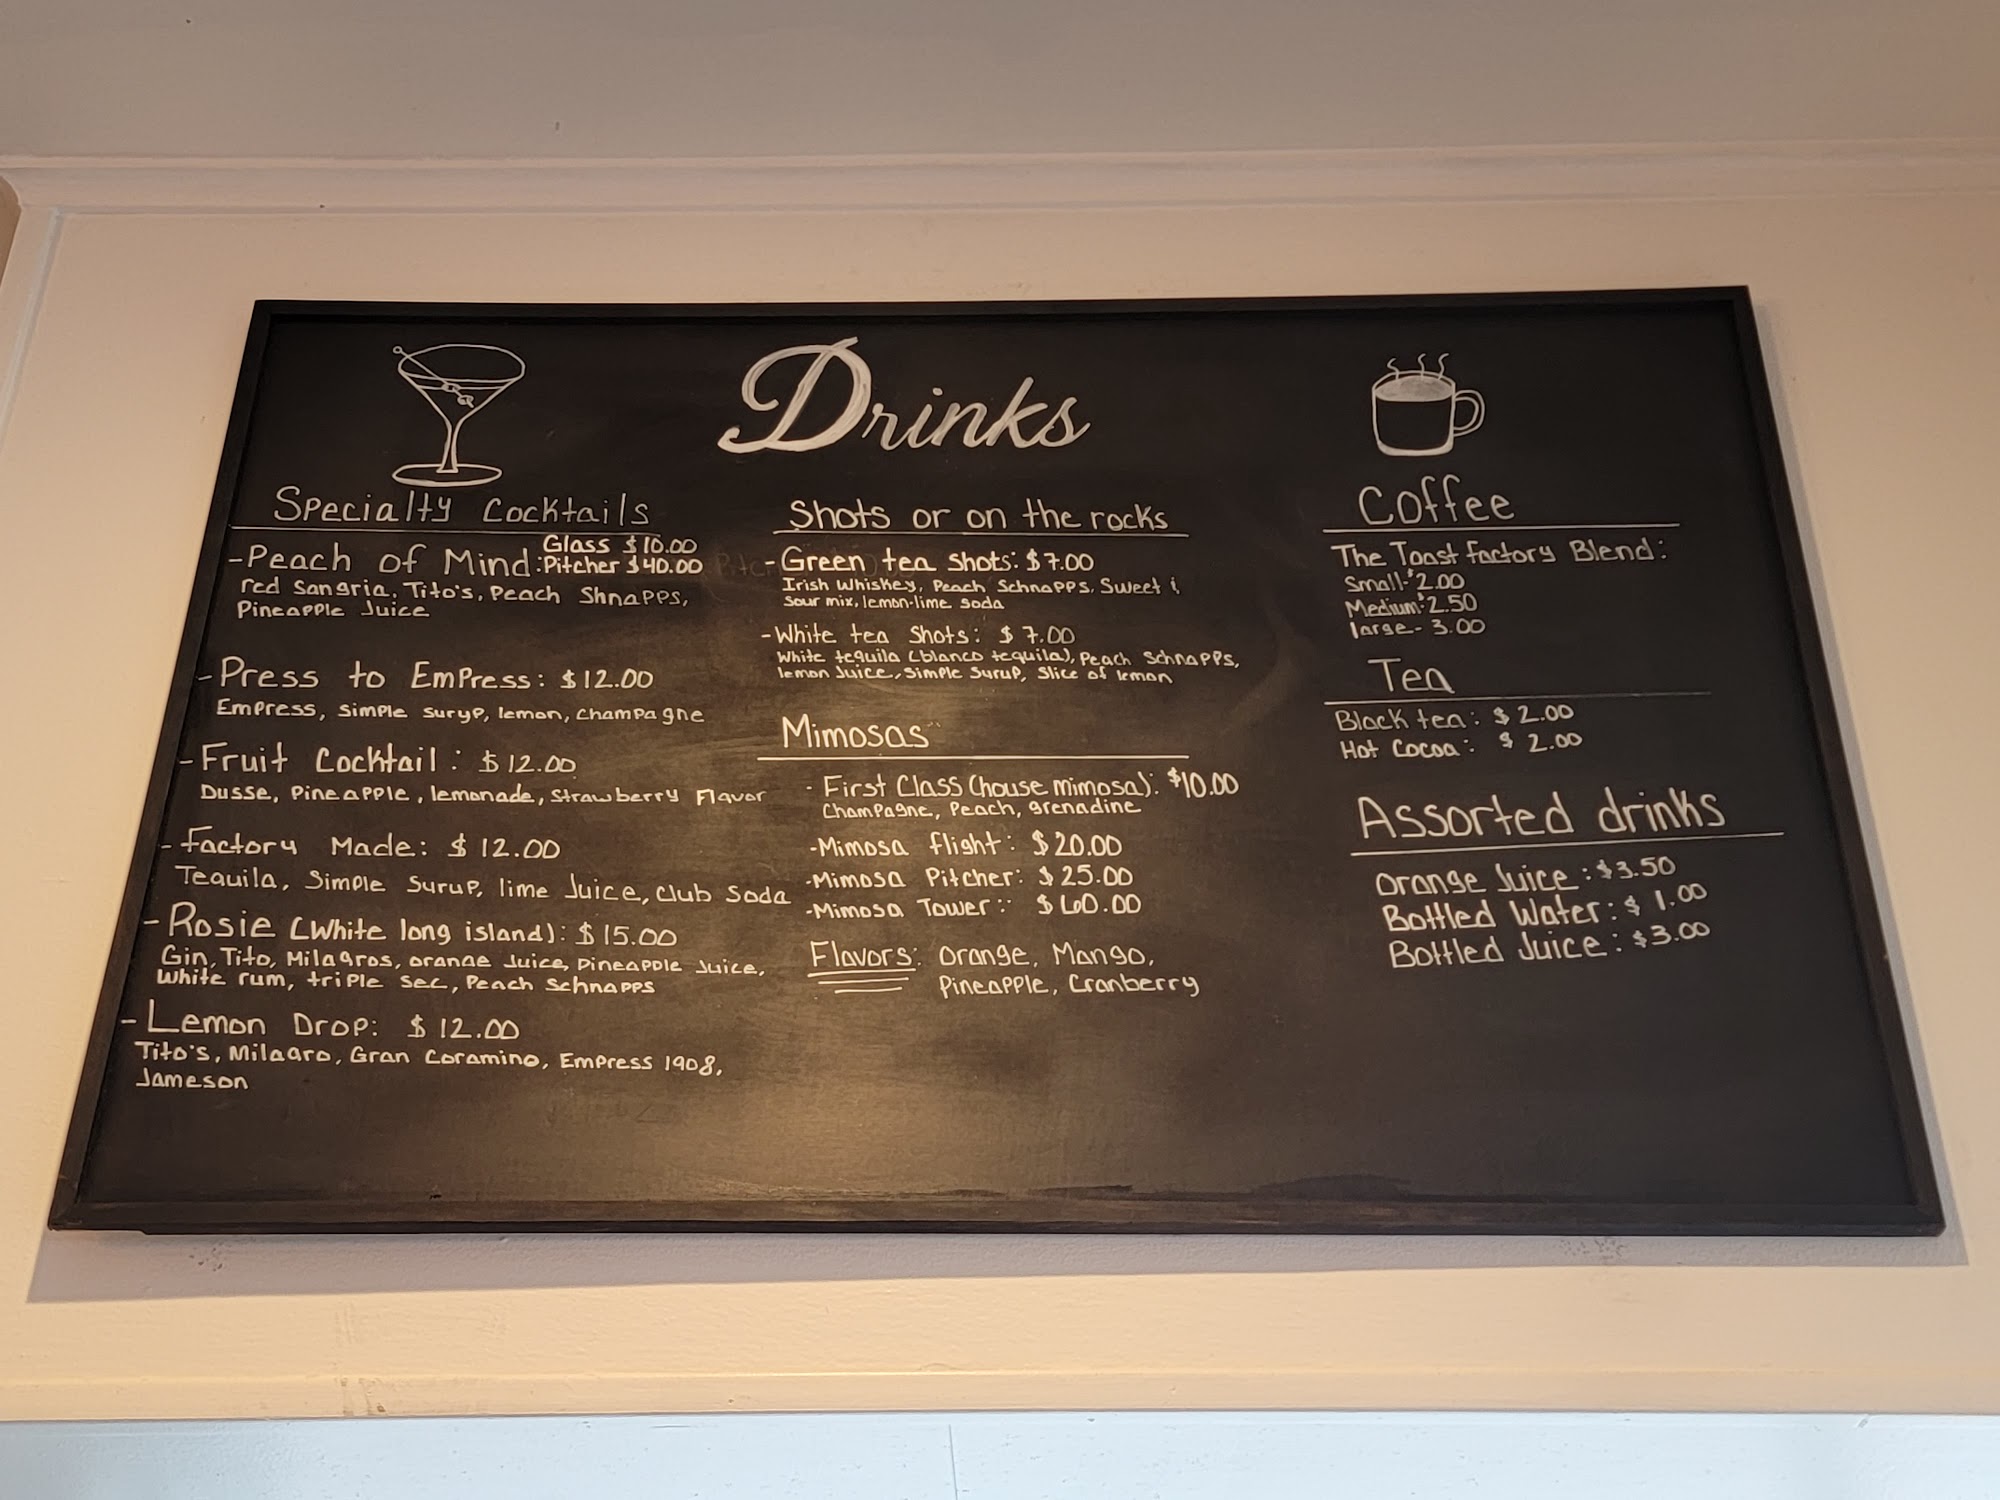 Drinks
Specialty Cocktails
-Peach of Mind: Glass $10.00
:Pitcher $40.00
red Sangria, Tito's, Peach Shnapps,
Pineapple Juice
-Press to Empress: $12.00
Empress, Simple Suryp, lemon, Champagne
-Fruit Cocktail: $12.00
Dusse, Pineapple, lemonade, Strawberry Flavor
-factory Made: $12.00
Tequila, Simple Surup, lime Juice, Club Soda
-Rosie (White long island): $15.00
Gin, Tito, Milagros, orange Juice, Pineapple Juice,
White rum, triple Sec, Peach Schnapps
-Lemon Drop: $12.00
Tito's, Milagro, Gran Coramino, Empress 1908,
Jameson
Shots or on the rocks
-Green tea Shots: $7.00
Irish Whiskey, Peach Schnapps, Sweet &
Sour mix, lemon-lime Soda
-White tea Shots: $7.00
White tequila (blanco tequila), Peach Schnapps,
lemon Juice, Simple Surup, Slice of lemon
Mimosas
- First Class (house mimosa): $10.00
Champagne, Peach, grenadine
-Mimosa flight: $20.00
-Mimosa Pitcher: $25.00
-Mimosa Tower: $60.00
Flavors: Orange, Mango,
Pineapple, Cranberry
Coffee
The Toast factory Blend:
Small: $2.00
Medium: $2.50
large- 3.00
Tea
Black tea: $2.00
Hot Cocoa: $2.00
Assorted drinks
Orange Juice: $3.50
Bottled Water: $1.00
Bottled Juice: $3.00